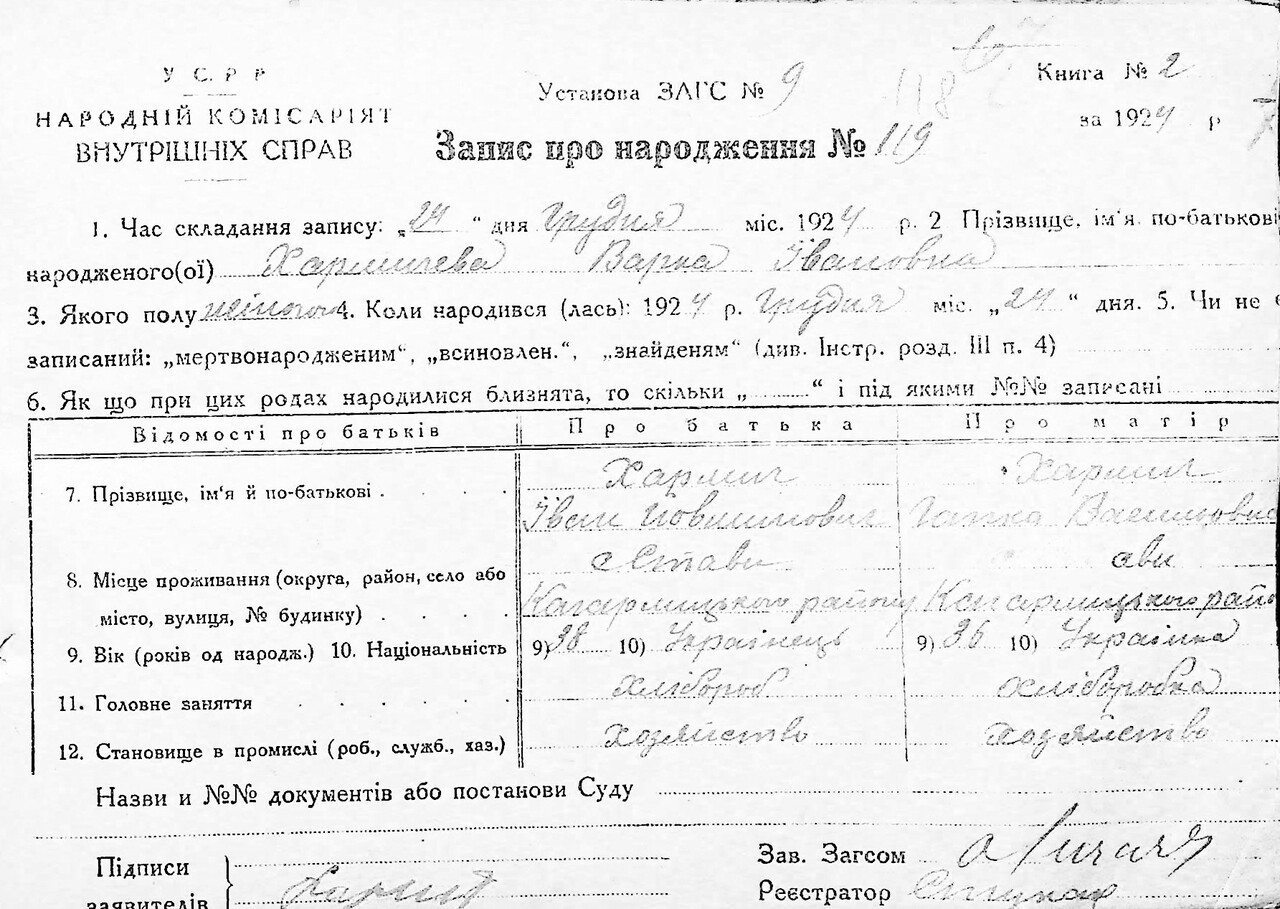 У С. Р Р
НАРОДНІЙ КОМІСАРІЯТ
ВНУТРІШНІХ СПРАВ
Установа ЗАГС № 9
118
Книга № 2
за 1924 р
Запис про народження № 119
1. Час складання запису: „24“ дня Грудня міс. 1924 р. 2 Прізвище, ім'я по-батькові
народженого(ої) Хармичева Варка Івановна
3. Якого полу жіночого 4. Коли народився (лась): 1924 р. Грудня міс. „24“ дня. 5. Чи не є
записаний: „мертвонародженим“, „всиновлен.“, „знайденям“ (див. Інстр. розд. III п. 4)
6. Як що при цих родах народилися близнята, то скільки „ “ і під якими №№ записані
Відомості про батьків Про батька Про матір
7. Прізвище, ім'я й по-батькові Хармич Хармич
Іван Гапка Василіовна
8. Місце проживання (округа, район, село або с Стави ави
місто, вулиця, № будинку) Кагарлицького району Кагарлицького райо
9. Вік (років од народж.) 10. Національність 9) 38 10) Українець 9) 36 10) Українка
11. Головне заняття хлібороб хліборобка
12. Становище в промислі (роб., служб., хаз.) хозяйство хозяйство
Назви и №№ документів або постанови Суду
Підписи
заявителів
Зав. Загсом
Реєстратор